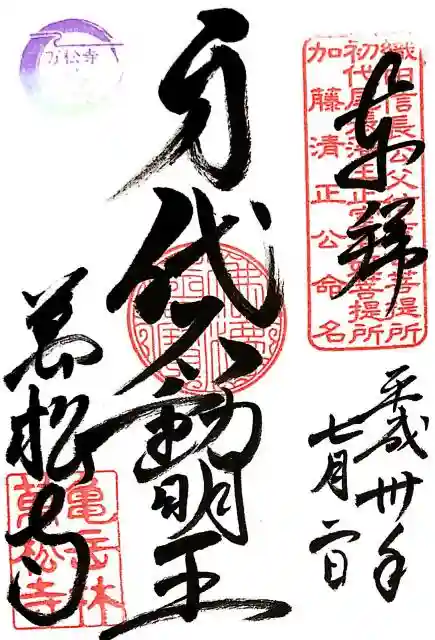 奉拝
織田信長公父
菩提所
初代尾張藩主正室
菩提所
加藤清正公命名
平成卅年
七月二日
身代不動明王
万松寺
萬松寺
亀岳林
萬松寺